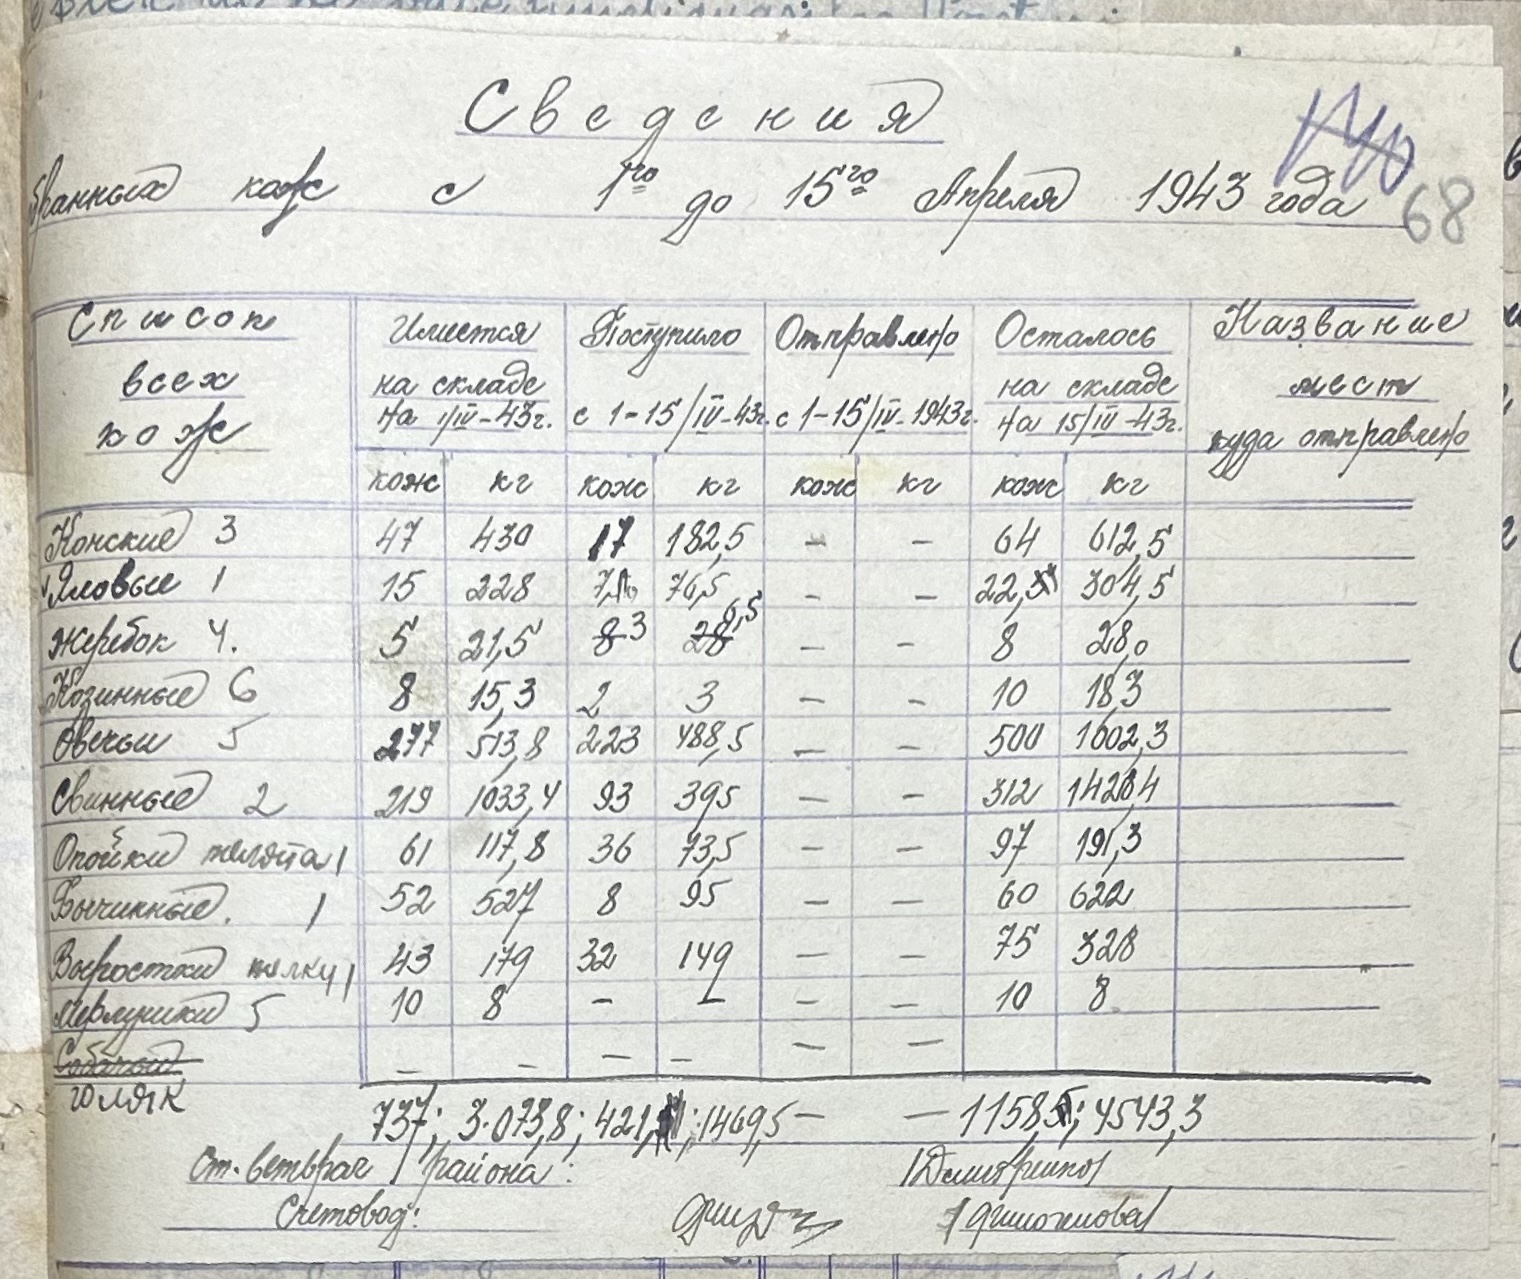 Сведения
бранных кож с 1го до 15го Апреля 1943 года
140
68
Список всех кож
Имеется на складе на 1/IV-43г.
Поступило с 1-15/IV-43г.
Отправлено с 1-15/IV-1943г.
Осталось на складе на 15/IV-43г.
Название мест куда отправлено
кож кг кож кг кож кг кож кг
Конские 3 47 430 17 182,5 – – 64 612,5
Яловые 1 15 228 7, 76,5 – – 22, 304,5
Жеребок 4. 5 21,5 8 3 28 6,5 – – 8 28,0
Козинные 6 8 15,3 2 3 – – 10 18,3
Овечьи 5 277 513,8 223 488,5 – – 500 1002,3
Свинные 2 219 1033,4 93 395 – – 312 1428,4
Опойки телята 1 61 117,8 36 73,5 – – 97 191,3
Бычинные. 1 52 527 8 95 – – 60 622
Выростки телку 1 43 179 32 149 – – 75 328
Мерлушки 5 10 8 – – – – 10 8
Собачьи – – – – – –
голяк
737; 3.073,8; 421, ; 1469,5 – – 1158, ; 4543,3
Ст. ветврач района: /Демитренко/
Счетовод: